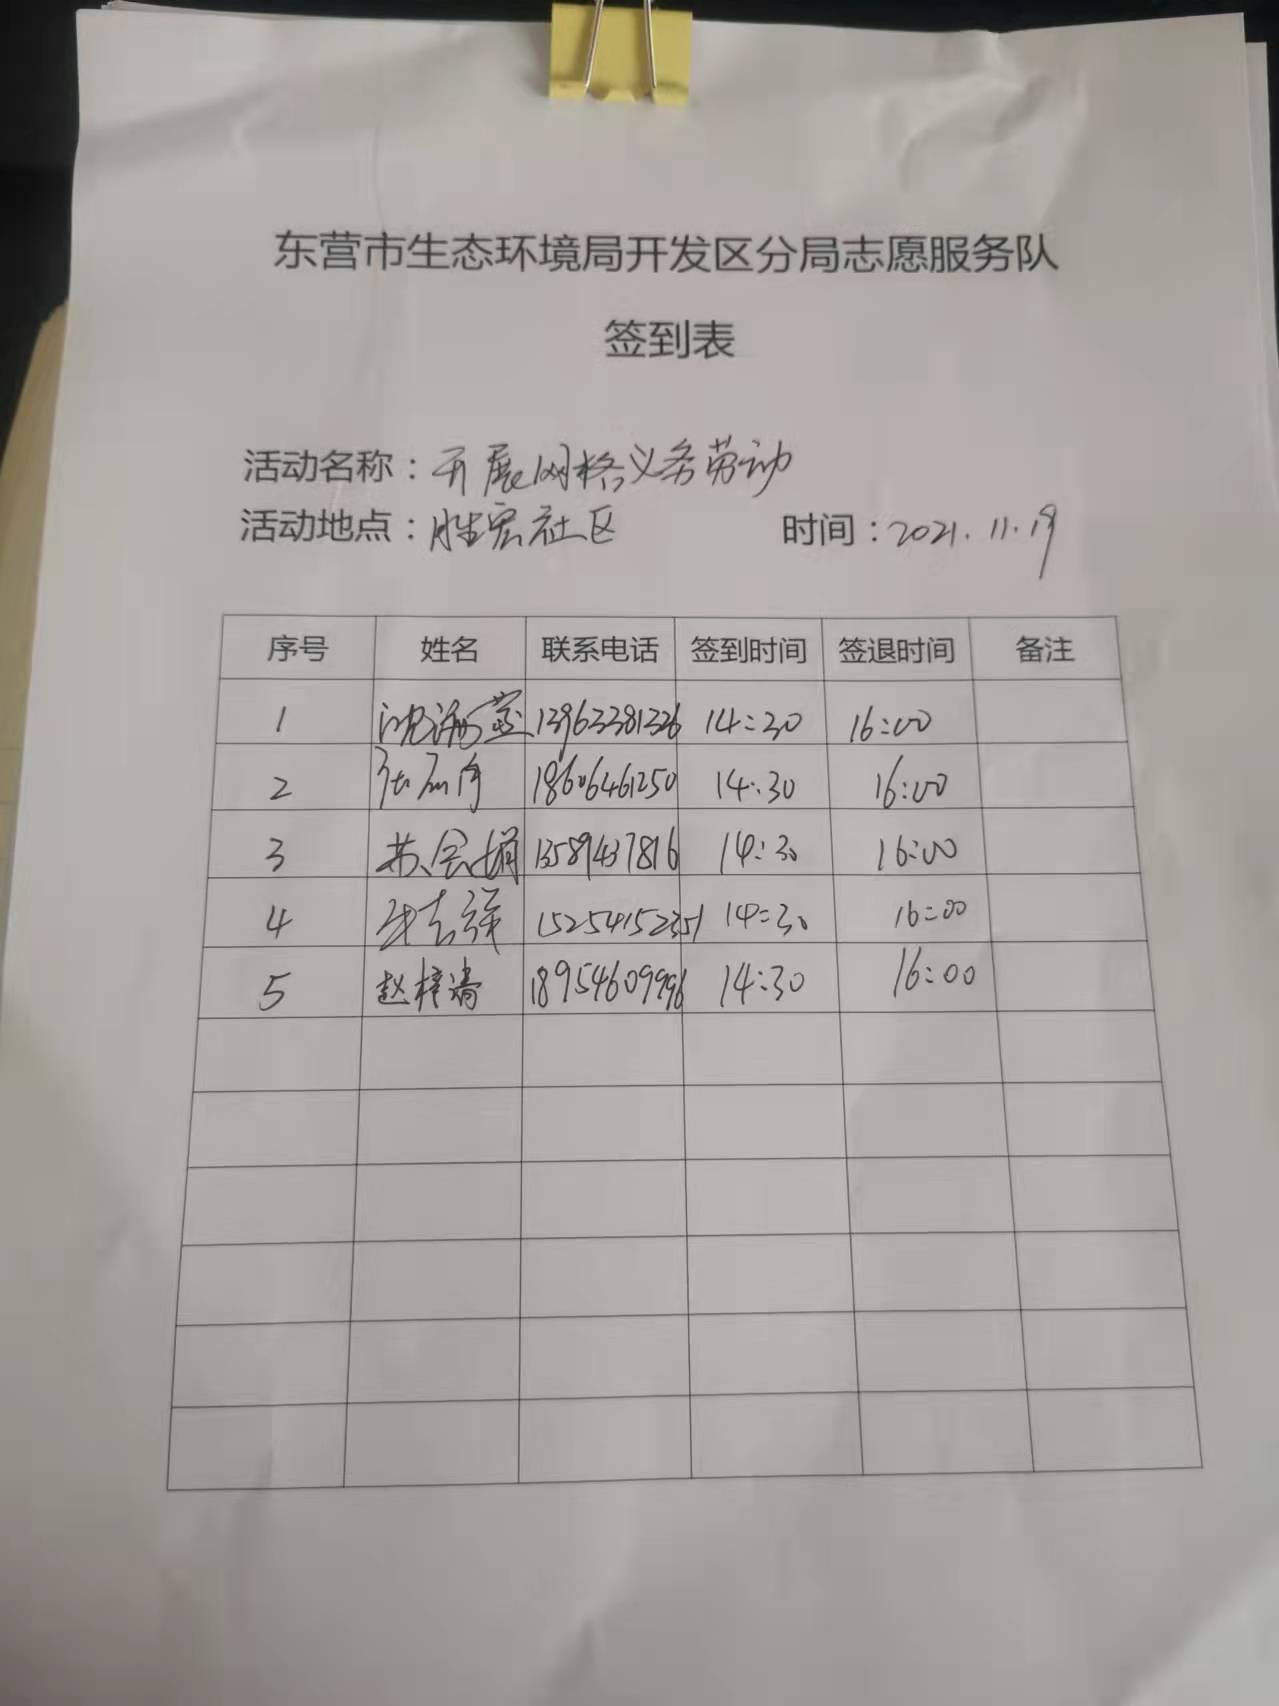 东营市生态环境局开发区分局志愿服务队
签到表
活动名称：开展网格义务劳动
活动地点：胜宏社区 时间：2021.11.19
序号 姓名 联系电话 签到时间 签退时间 备注
1 13963381326 14:30 16:00
2 18606461250 14:30 16:00
3 苏会娟 13589437816 14:30 16:00
4 15254152351 14:30 16:00
5 赵梓清 18954609996 14:30 16:00